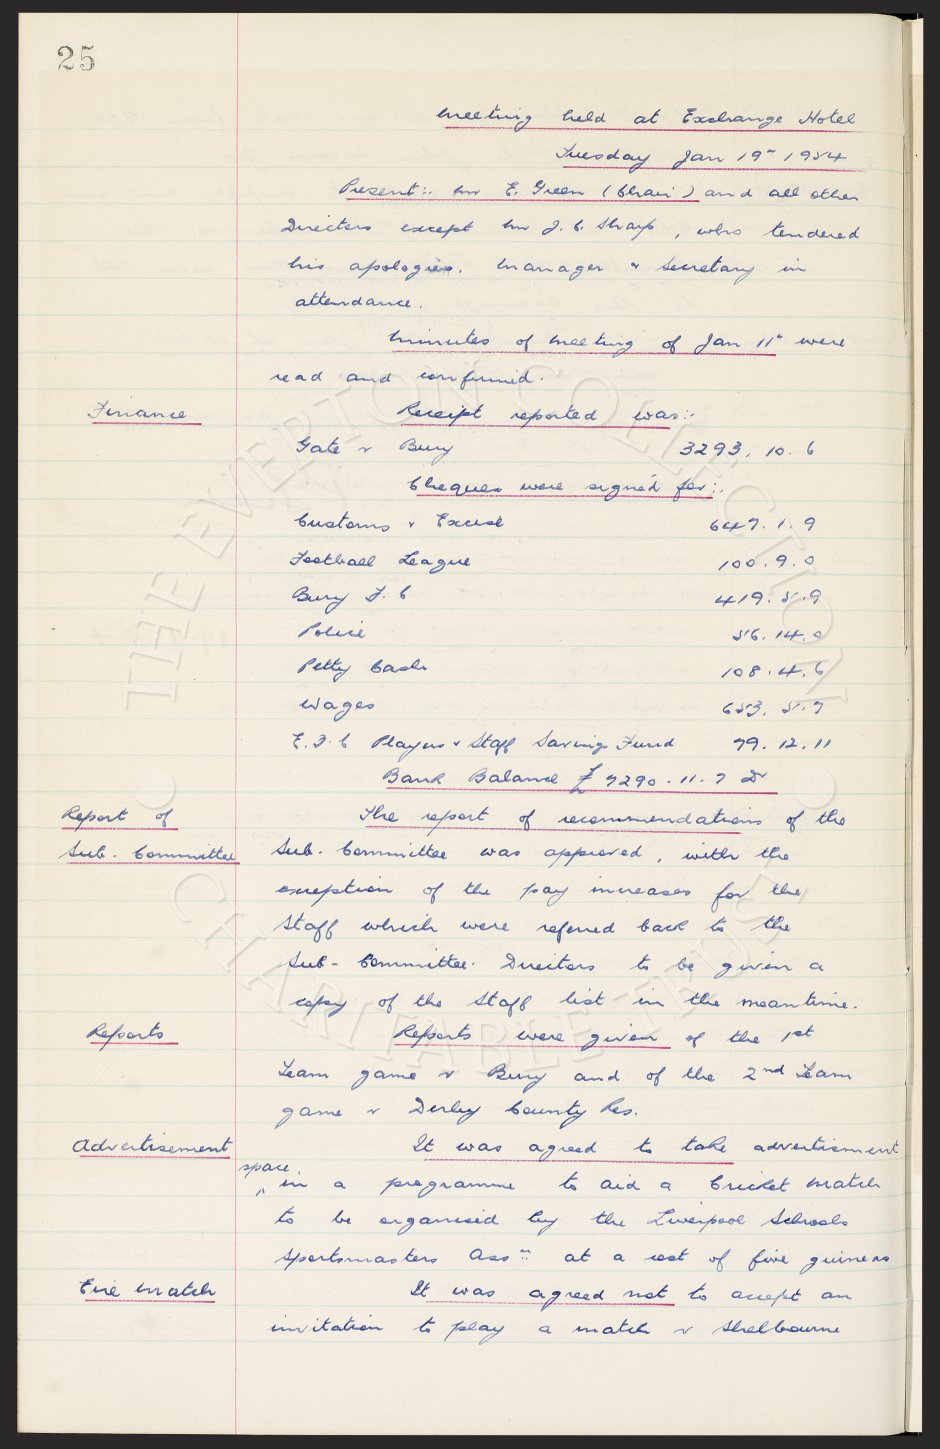 25
Meeting held at Exchange Hotel
Tuesday Jan 19" 1954
Present:: Mr E. Green (Chair) and all other
Directors except Mr J. C. Sharp, who tendered
his apologies. Manager & Secretary in
attendance.
Minutes of Meeting of Jan 11" were
read and confirmed.
Finance Receipt reported was::
Gate v Bury 3293. 10. 6
Cheques were signed for::
Customs & Excise 647. 1. 9
Football League 100. 9. 0
Bury F. C 419. 5. 9
Police 56. 14. 0
Petty Cash 108. 4. 6
Wages 653. 5. 7
E. F. C Players & Staff Savings Fund 79. 12. 11
Bank Balance £7290. 11. 7 Dr
Report of The report of recommendations of the
Sub. Committee Sub. Committee was approved, with the
exception of the pay increases for the
Staff which were referred back to the
Sub-Committee. Directors to be given a
copy of the Staff list in the meantime.
Reports Reports were given of the 1st
Team game v Bury and of the 2nd Team
game v Derby County Res.
Advertisement It was agreed to take advertisment
space in a programme to aid a Cricket Match
to be organised by the Liverpool Schools
Sportsmasters Assn: at a cost of five guineas
Eire Match It was agreed not to accept an
invitation to play a match v Shelbourne
THE EVERTON COLLECTION
CHARITABLE TRUST